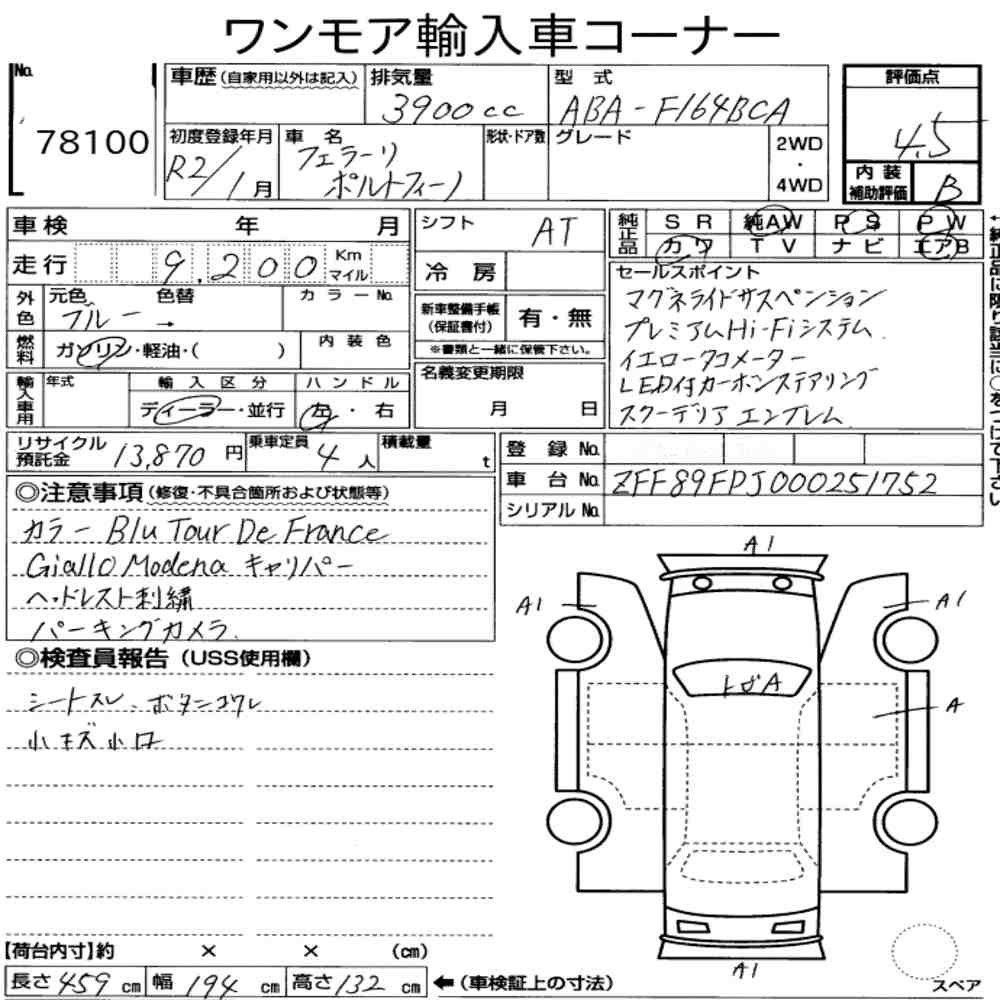 ワンモア輸入車コーナー
No. 78100
車歴(自家用以外は記入) 排気量 3900cc 型式 ABA-F164BCA 評価点 4.5
初度登録年月 R2/1月 車名 フェラーリ ポルトフィーノ 形状・ドア数 グレード 2WD・4WD 内装補助評価 B
車検 年 月
シフト AT
純正品 SR 純AW PS PW
カワ TV ナビ エアB
走行 9,200 Km マイル
冷房
外色 元色 ブルー → 色替 カラーNo.
新車整備手帳(保証書付) 有・無
※書類と一緒に保管下さい。
燃料 ガソリン・軽油・( ) 内装色
名義変更期限 月 日
輸入車用 年式 輸入区分 ディーラー・並行 ハンドル 左・右
セールスポイント
マグネライドサスペンション
プレミアムHi-Fiシステム
イエロータコメーター
LED付カーボンステアリング
スクーデリアエンブレム
←純正品に限り該当に○をつけて下さい
リサイクル預託金 13,870円 乗車定員 4人 積載量 t
登録No.
車台No. ZFF89FPJ000251752
シリアルNo.
◎注意事項(修復・不具合箇所および状態等)
カラー Blu Tour De France
Giallo Modena キャリパー
ヘッドレスト刺繍
パーキングカメラ
◎検査員報告(USS使用欄)
シートスレ、ボタンコワレ
小キズ小凹
A1
A1
A1
トビA
A
A1
【荷台内寸】約 × × (cm)
長さ 459 cm 幅 194 cm 高さ 132 cm ←(車検証上の寸法)
スペア